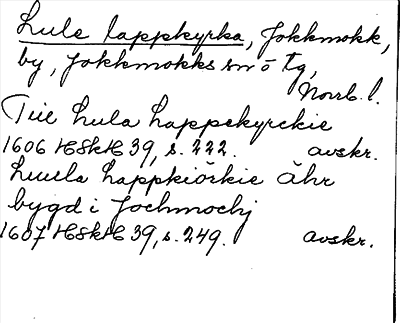 Lule lappkyrka, Jokkmokk,
by, Jokkmokks sn o tg,
Norrb. l.
Till Lula Lappekyrckie
1606 HSkH 39, s. 222. avskr.
Luula Lappkiörkie ähr
bygd i Jochmochj
1607 HSkH 39, s. 249. avskr.